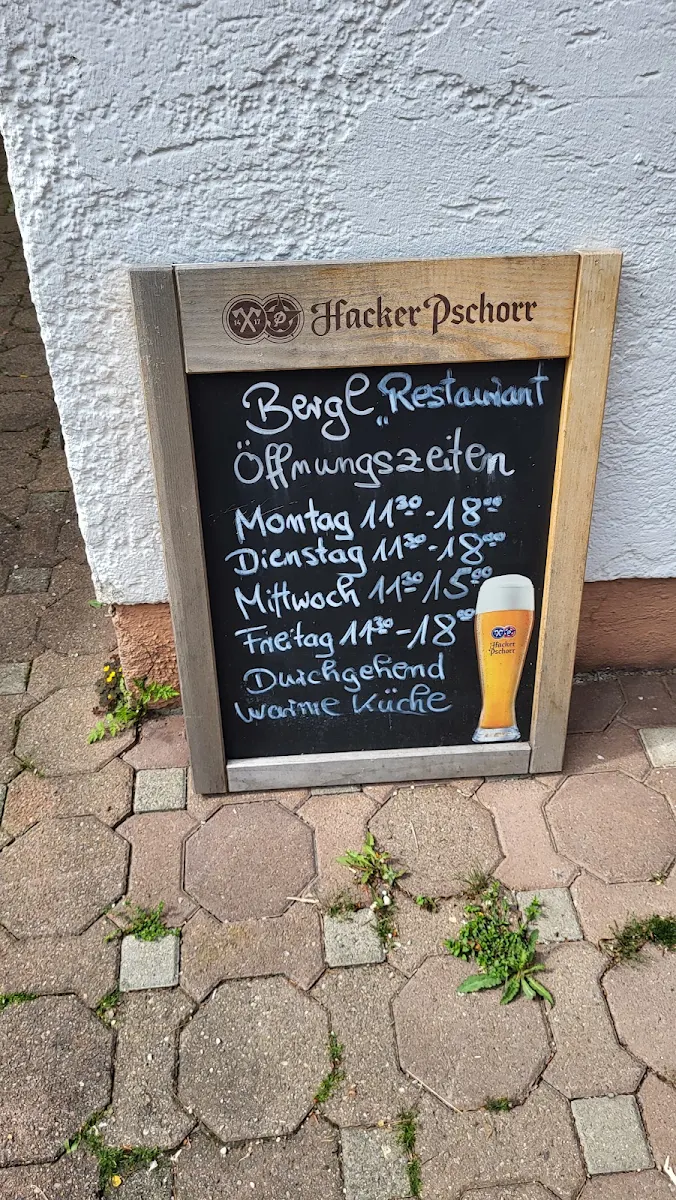 Hacker Pschorr
Bergl „Restaurant
Öffnungszeiten
Montag 11³⁰-18⁰⁰
Dienstag 11³⁰-18⁰⁰
Mittwoch 11³⁰ 15⁰⁰
Freitag 11³⁰-18⁰⁰
Durchgehend
warme Küche
Hacker
Pschorr